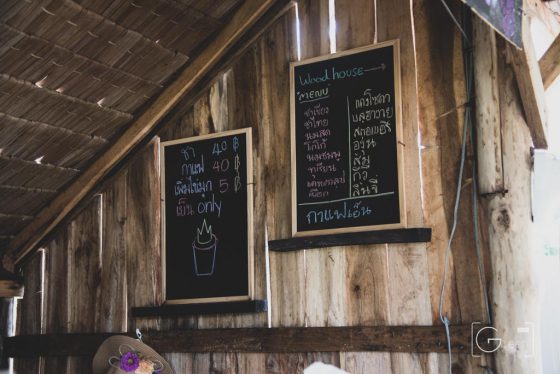 ชา 40 ฿
กาแฟ 40 ฿
เพิ่มไข่มุก 5 ฿
เย็น only
Wood house
"MENU"
ชาเขียว
ชาไทย
นมสด
โกโก้
นมชมพู
ทุเรียน
แคนตาลูป
เผือก
แดงโซดา
บลูฮาวาย
สตอเบอรี่
องุ่น
ส้ม
กีวี
ลิ้นจี่
กาแฟเย็น
G